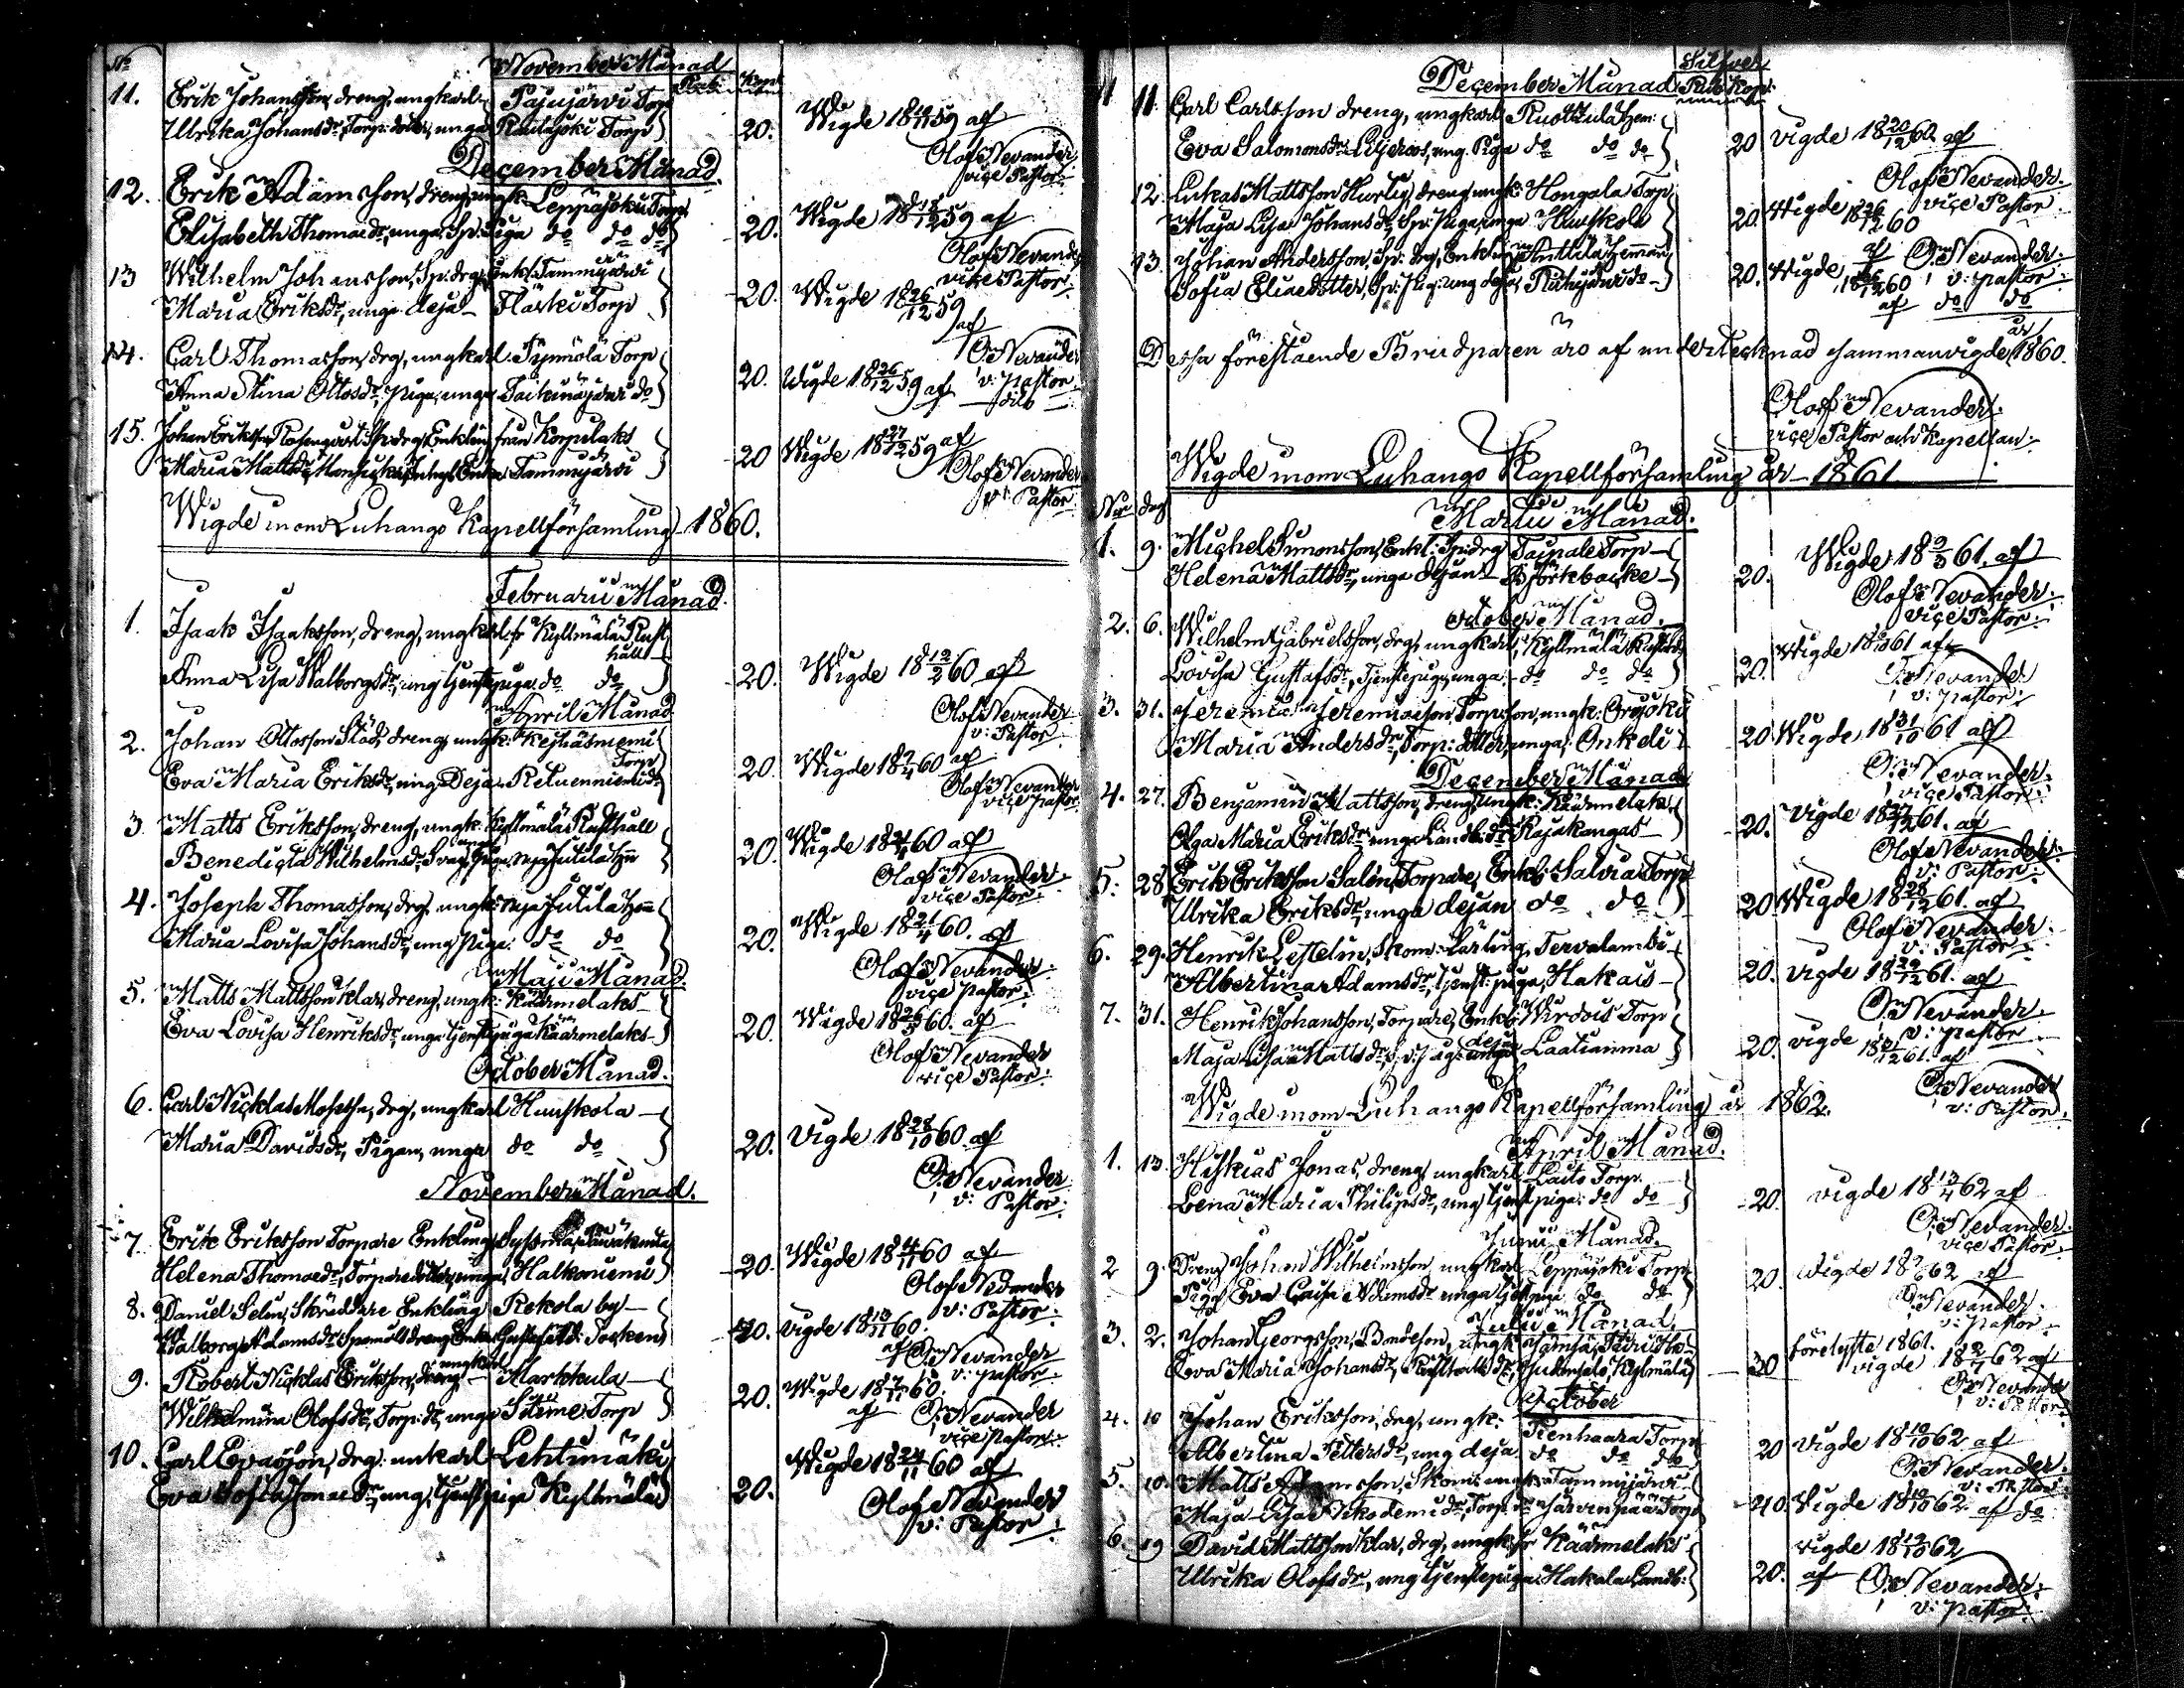 No
November Månad
Rub. Kop.
11. Erik Johansson, dreng, ungkarl, Pajujärvi Torp
Ulrika Johansdr, Torp: dotter, unga Rautajoki Torp 20. Wigde 18 /11 59 af
Olof Nevander
vice Pastor.
December Månad.
12. Erik Adamsson, dreng, ungk. Leppäjoki Torp
Elisabeth Thomædr, unga, Sp: Piga do do do 20. Wigde 18 /12 59 af
Olof Nevander
vice Pastor.
13 Wilhelm Johansson, Sp: drg, Enkl: Tammijärvi
Maria Eriksdr, unga deja Fläski Torp 20. Wigde 18 26/12 59 af
O. Nevander
v: Pastor.
14. Carl Thomasson, drg, ungkarl. Torp
Anna Stina Ottosdr, piga, unga do 20. Wigde 18 26/12 59 af dito
15. Johan Eriksson Rosenqvist Enkling från Korpilaks
Maria Mattsdr Enka Tammijärvi 20 Wigde 18 27/12 59 af
Olof Nevander
v: Pastor
Wigde inom Luhango Kapellförsamling 1860.
Februarii Månad.
1. Isaak Isaaksson, dreng, ungkarl, fr Kyllmälä Rust
håll
Anna Lisa Walborgsdr, ung tjenstepiga do do 20. Wigde 18 12/2 60 af
Olof Nevander
v: Pastor
April Månad
2. Johan Ottosson Städ, dreng, ungk:
Torp
Eva Maria Eriksdr, ung Deja do 20. Wigde 18 9/4 60 af
Olof Nevander
vice pastor
3. Matts Eriksson, dreng, ungk. Kyllmälä Rusthåll
Benedicta Wilhelmsdr 20. Wigde 18 /4 60 af
Olof Nevander
vice Pastor.
4. Joseph Thomasson, drg, ungk:
Maria Lovisa Johansdr, ung piga: do do 20. Wigde 18 21/4 60. af
Olof Nevander
vice Pastor.
Maji Månad.
5. Matts Mattsson Klar, dreng, ungk: Käärmelaks
Eva Lovisa Henriksdr, unga tjenstepiga Käärmelaks 20. Wigde 18 26/5 60. af
Olof Nevander
vice Pastor.
October Månad.
6. Carl Nicklas drg, ungkarl Huuskola
Maria Davidsdr, Pigan, unga do do 20. Vigde 18 28/10 60. af
O. Nevander
v: Pastor.
November Månad.
7. Erik Eriksson Torpare Enkling, Sysmä,
Helena Thomædr, Torparedotter, unga, Halkoniemi 20. Wigde 18 4/11 60 af
Olof Nevander
v: Pastor.
8. Daniel Selin, Skräddare Enkling Rekola by
Walborg Adamsdr 40. Vigde 18 13/11 60.
af O. Nevander
v: pastor.
9. Robert Nicklas Eriksson, dreng ungkarl Markkula
Wilhelmina Olofsdr, Torp: dr, unga Torp 20. Wigde 18 /11 60.
af O. Nevander
vice pastor.
10. Carl Evasson, drg: unkarl Lehtimäki
Eva Sofia Jonædr, ung tjenst piga Kyllmälä 20. Wigde 18 24/11 60 af
Olof Nevander
v: Pastor.
December Månad
Silfver
Rub. Kop.
11. Carl Carlsson dreng, ungkarl Ruokkula Hem:
Eva Salomonsdr Liljeroos, ung. Piga do do do 20 Vigde 18 20/12 60. af
Olof Nevander
vice Pastor
12. Lukas Mattsson Hurtig, dreng, ungk: Hongala Torp
Maja Lisa Johansdr, Sp: Piga, unga Huuskola 20. Wigde 18 26/12 60
af O. Nevander
v: pastor.
13. Julian Andersson, Sp: drg, Enkling, Anttila Hemman
Sofia Eliædotter, Sp: Pig: ung deja, do 20. Wigde 18 26/12 60
af do do
Dessa förestående Brudparen äro af undertecknad sammanvigde år 1860.
Olof Nevander.
vice Pastor och Kapellan.
Wigde inom Luhango Kapellförsamling år 1861
No dag
Martii Månad.
1. 9. Michel Simonsson, Enkl: Sp: drg Taipale Torp
Helena Mattsdr, unga dejan Björkbacke 20. Wigde 18 9/3 61. af
Olof Nevander.
vice Pastor.
October Månad.
2. 6. Wilhelm Gabrielsson, drg, ungkarl, Kyllmälä Rusthåll
Lovisa Gustafsdr, Tjenstepiga, unga do do do 20. Wigde 18 6/10 61 af
O. Nevander
v: pastor.
3. 31. Jeremias Jeremiæson, Torpson, ungk: Orijoki
Maria Andersdr, Torp: dotter, unga: Onkeli 20 Wigde 18 31/10 61 af
O. Nevander.
vice Pastor.
December Månad
4. 27. Benjamin Mattsson, dreng, ungk: Käärmelaks
Olga Maria Eriksdr unga Landb: dr Rajakangas 20. Vigde 18 27/12 61. af
Olof Nevander.
v: Pastor.
5. 28 Erik Eriksson Salén, Torpare, Enkl: Salvia Torp
Ulrika Eriksdr, unga dejan do do 20 Wigde 18 28/12 61. af
Olof Nevander.
v: Pastor.
6. 29. Henrik Lettelin, Skom: Lärling, Tervalambi
Albertina Adamsdr, tjenst: piga, Hakais 20. Vigde 18 29/12 61. af
O. Nevander.
v: pastor
7. 31. Henrik Johansson, Torpare, Enkl: Wirdois Torp
Maja Lisa Mattsdr, deja Laatianma 20. vigde 18 31/12 61. af
O. Nevander
v: Pastor.
Wigde inom Luhango Kapellförsamling år 1862.
April Månad.
1. 13. Hiskias Jonas, dreng ungkarl, Laito Torp.
Lena Maria Philipsdr, ung tjenst piga: do do 20. Vigde 18 13/4 62 af
O. Nevander.
vice Pastor.
Junii Månad.
2 9. Dreng Johan Wilhelmsson, ungkarl Leppäjoki Torp
Pig: Eva Caisa Adamsdr unga do do 20. Wigde 18 9/6 62 af
O. Nevander.
v: pastor.
Julii Månad.
3. 2. Johan Georgsson, Bondeson, ungk. Jämsä,
Eva Maria Johansdr, Kyllmälä 30 Förelyste 1861.
vigde 18 2/7 62 af
O. Nevander
v: Pastor.
October
4. 10 Johan Eriksson, drg, ungk: Renhaara Torp
Albertina Pettersdr, ung deja do do do 20 Vigde 18 10/10 62 af
O. Nevander.
v: Pastor.
5. 10. Matts Adamsson, Skom: ungk: Tammijärvi
Maja Lisa Nikodemidr, Torp. dr Järvenpää Torp 40. Vigde 18 10/10 62 af do
6. 19 David Mattsson Klar, drg, ungk: fr Käärmelaks
Ulrika Olofsdr, ung tjenstepiga: Hakala Landb: 20. vigde 18 19/10 62
af O. Nevander.
v: pastor.